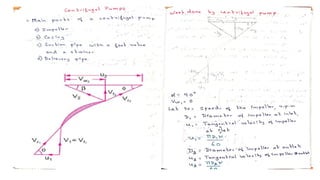 Centrifugal Pumps
→ Main parts of a centrifugal pump
a) Impeller
b) Casing
c) Suction pipe with a foot valve
and a strainer
d) Delivery pipe.
u₂
Vw₂
β
Vf₂
Vr₁
V₁ = Vf₁
θ
u₁
work done by centrifugal pump
α = 90°
Vw₁ = 0
Let N = Speed of the impeller, r.p.m
D₁ = Diameter of impeller at inlet,
u₁ = Tangential velocity of impeller
at inlet
u₁ = πD₁N
60
D₂ = Diameter of impeller at outlet
u₂ = Tangential velocity of impeller outlet
u₂ = πD₂N
60